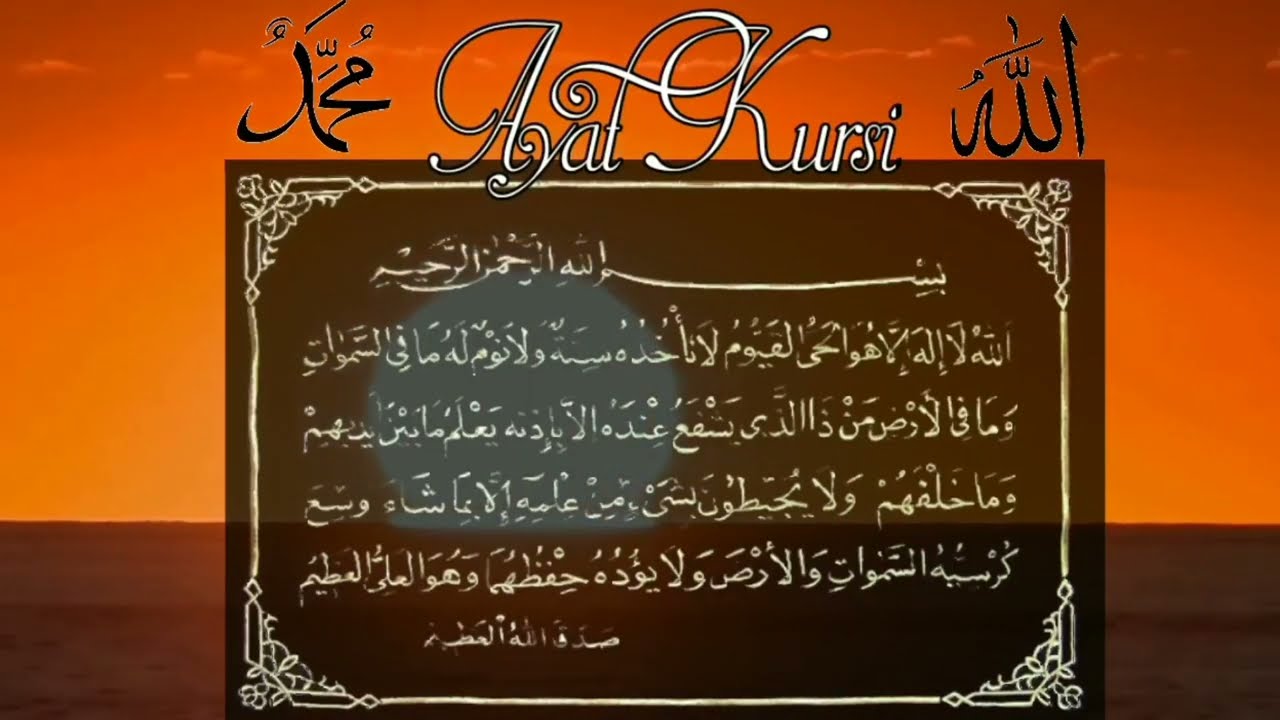 مُحَمَّدٌ
Ayat Kursi
اللّٰهُ
بِسْمِ اللهِ الرَّحْمٰنِ الرَّحِيْمِ
اَللهُ لَا إِلٰهَ إِلَّا هُوَ الْحَيُّ الْقَيُّومُ لَا تَأْخُذُهُ سِنَةٌ وَلَا نَوْمٌ لَهُ مَا فِي السَّمٰوَاتِ
وَمَا فِي الْأَرْضِ مَنْ ذَا الَّذِي يَشْفَعُ عِنْدَهُ إِلَّا بِإِذْنِهِ يَعْلَمُ مَا بَيْنَ أَيْدِيهِمْ
وَمَا خَلْفَهُمْ وَلَا يُحِيْطُوْنَ بِشَيْءٍ مِنْ عِلْمِهِ إِلَّا بِمَا شَاءَ وَسِعَ
كُرْسِيُّهُ السَّمٰوَاتِ وَالْأَرْضَ وَلَا يَؤُدُهُ حِفْظُهُمَا وَهُوَ الْعَلِيُّ الْعَظِيْمُ
صَدَقَ اللهُ الْعَظِيْم